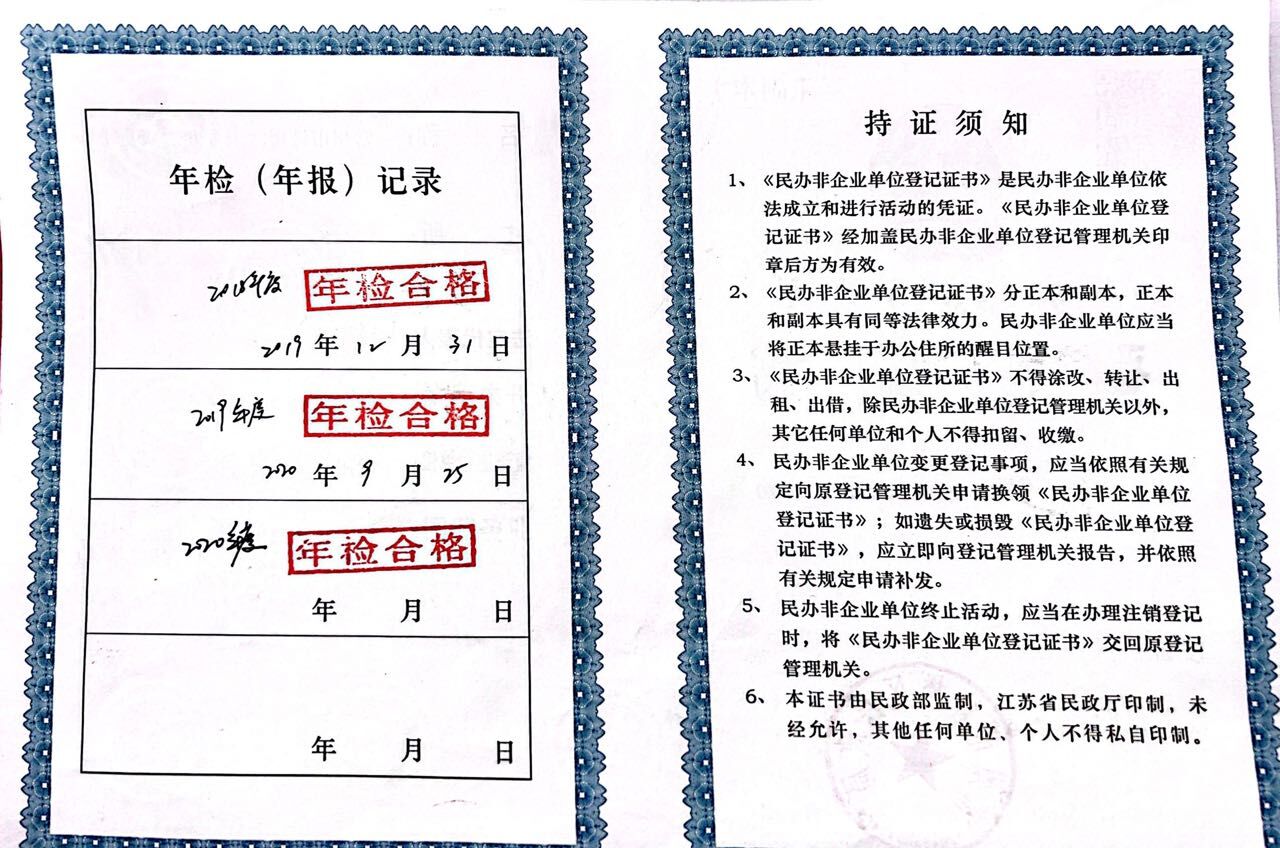 年检（年报）记录
2018年度 年检合格
2019 年 12 月 31 日
2019年度 年检合格
2020 年 9 月 25 日
2020年度 年检合格
年 月 日
年 月 日
持证须知
1、《民办非企业单位登记证书》是民办非企业单位依
法成立和进行活动的凭证。《民办非企业单位登
记证书》经加盖民办非企业单位登记管理机关印
章后方为有效。
2、《民办非企业单位登记证书》分正本和副本，正本
和副本具有同等法律效力。民办非企业单位应当
将正本悬挂于办公住所的醒目位置。
3、《民办非企业单位登记证书》不得涂改、转让、出
租、出借，除民办非企业单位登记管理机关以外，
其它任何单位和个人不得扣留、收缴。
4、民办非企业单位变更登记事项，应当依照有关规
定向原登记管理机关申请换领《民办非企业单位
登记证书》；如遗失或损毁《民办非企业单位登
记证书》，应立即向登记管理机关报告，并依照
有关规定申请补发。
5、民办非企业单位终止活动，应当在办理注销登记
时，将《民办非企业单位登记证书》交回原登记
管理机关。
6、本证书由民政部监制，江苏省民政厅印制，未
经允许，其他任何单位、个人不得私自印制。